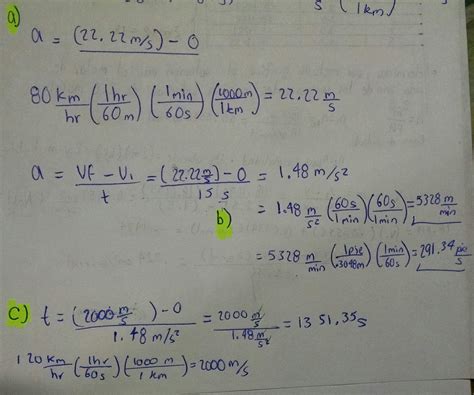 s (1km)
a)
a = (22.22 m/s) - 0
80 km/hr (1hr/60m) (1min/60s) (1000m/1km) = 22.22 m/s
a = VF - Vi / t = (22.22 m/s) - 0 / 15 s = 1.48 m/s²
b)
= 1.48 m/s² (60s/1min) (60s/1min) = 5328 m/min
= 5328 m/min (1pie/.3048m) (1min/60s) = 291.34 pie/s
c) t = (2000 m/s) - 0 / 1.48 m/s² = 2000 m/s / 1.48 m/s² = 1351.35 s
120 km/hr (1hr/60s) (1000 m/1 km) = 2000 m/s